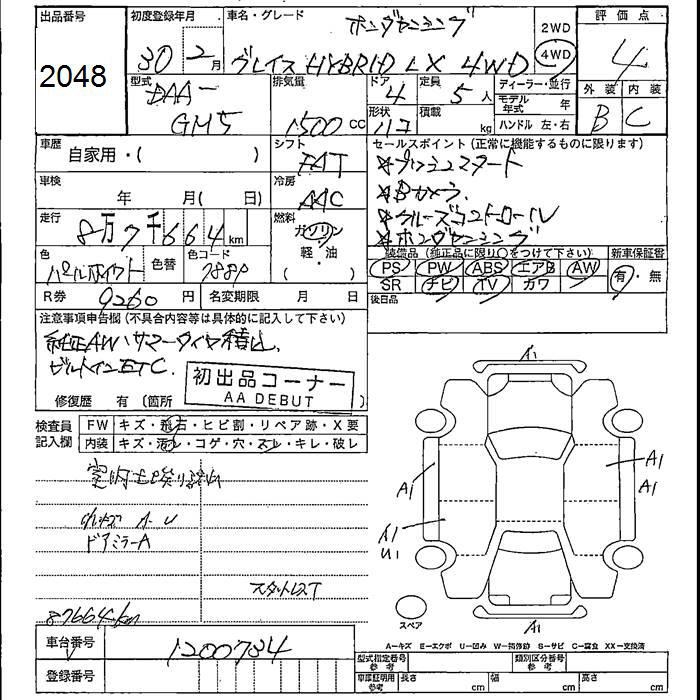 出品番号 初度登録年月 車名・グレード ホンダセンシング 2WD 評価点
2048 30年2月 グレイス HYBRID LX 4WD 4WD 4
型式 排気量 ドア 定員 ディーラー・並行 外装 内装
DAA-GM5 1500cc 4 5人 モデル年式 年 B C
形状 積載 kg ハンドル 左・右
車歴 自家用・( ) シフト FAT セールスポイント(正常に機能するものに限ります)
車検 年 月( 日) 冷房 AAC *プッシュスタート
*Bカメラ
走行 8万7千664km 燃料 ガソリン *クルーズコントロール
軽・油 *ホンダセンシング
( )
色 パールホワイト 色替 色コード 788P 装備品(純正品に限り○をつけて下さい) 新車保証書
PS PW ABS エアB AW 有・無
SR ナビ TV カワ
R券 9260円 名変期限 月 日 後日品
注意事項申告欄(不具合内容等は具体的に記入して下さい)
純正AWサマータイヤ積込
ビルトインETC.
初出品コーナー
AA DEBUT
修復歴 有(箇所
検査員記入欄 FW キズ・飛石・ヒビ割・リペア跡・X要
内装 キズ・汚レ・コゲ・穴・スレ・キレ・破レ
A1
A1
A1
A1
A1
A1
U1
A1
A・U
ドアミラーA
スタットレスT
87664km
スペア
A-キズ E-エクボ U-凹み W-補修跡 S-サビ C-腐食 XX-交換済
車台番号 1200784 型式指定番号 参考 類別区分番号 参考
登録番号 車庫証明用 参考 長さ cm 幅 cm 高さ cm